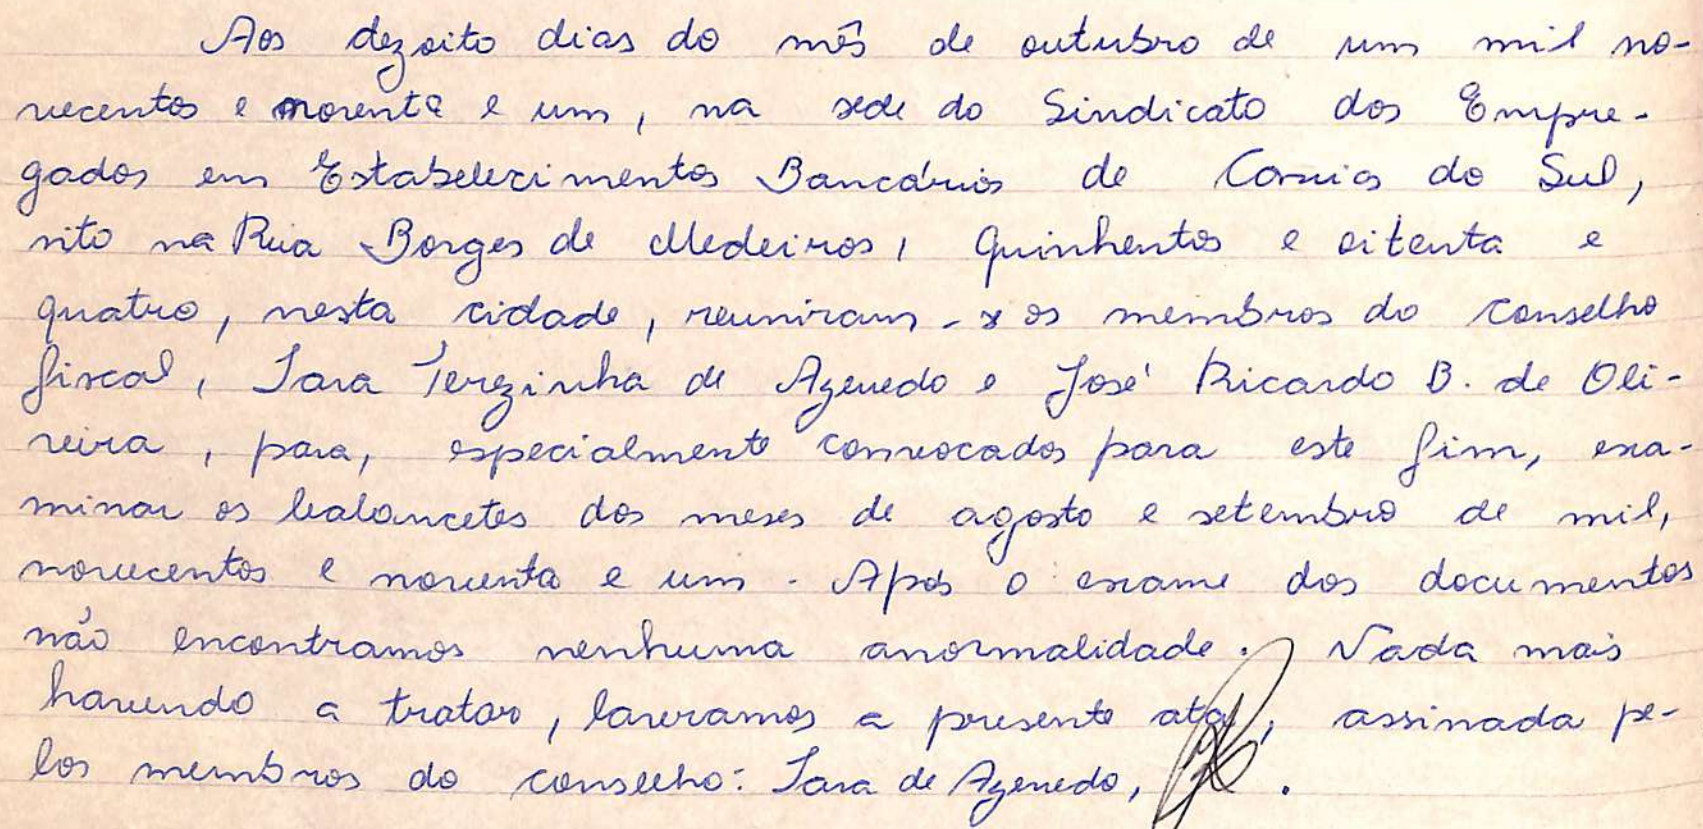 Aos dezoito dias do mês de outubro de um mil no-
vecentos e noventa e um, na sede do Sindicato dos Empre-
gados em Estabelecimentos Bancários de Caxias do Sul,
sito na Rua Borges de Medeiros, quinhentos e oitenta e
quatro, nesta cidade, reuniram-se os membros do conselho
fiscal, Iara Terezinha de Azevedo e José Ricardo B. de Oli-
veira, para, especialmente convocados para este fim, exa-
minar os balancetes dos meses de agosto e setembro de mil,
novecentos e noventa e um. Após o exame dos documentos
não encontramos nenhuma anormalidade. Nada mais
havendo a tratar, lavramos a presente ata, assinada pe-
los membros do conselho: Iara de Azevedo, .